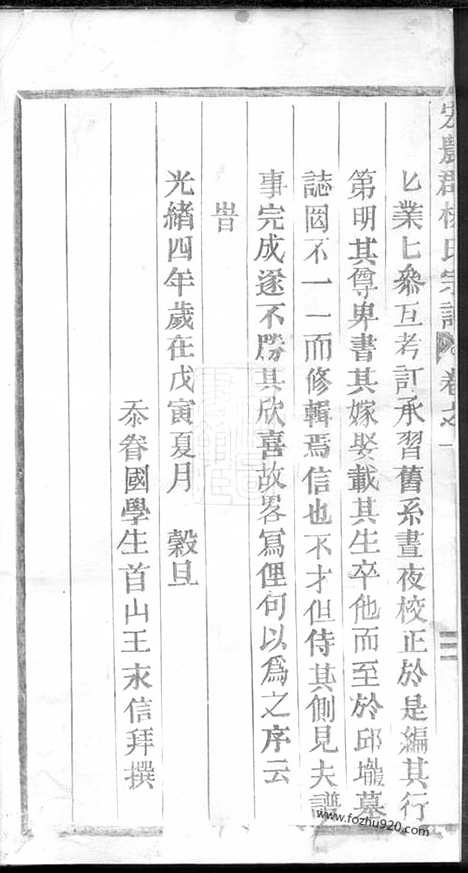 宏農郡楊氏宗譜 卷之一
匕業匕參互考訂承習舊系晝夜校正於是編其行
第明其尊卑書其嫁娶載其生卒他而至於邱壠墓
誌罔不一一而修輯焉信也不才但侍其側見夫譜
事完成遂不勝其欣喜故畧寫俚句以爲之序云
旹
光緒四年歲在戊寅夏月 穀旦
忝眷國學生首山王永信拜撰
www.fozhu920.com